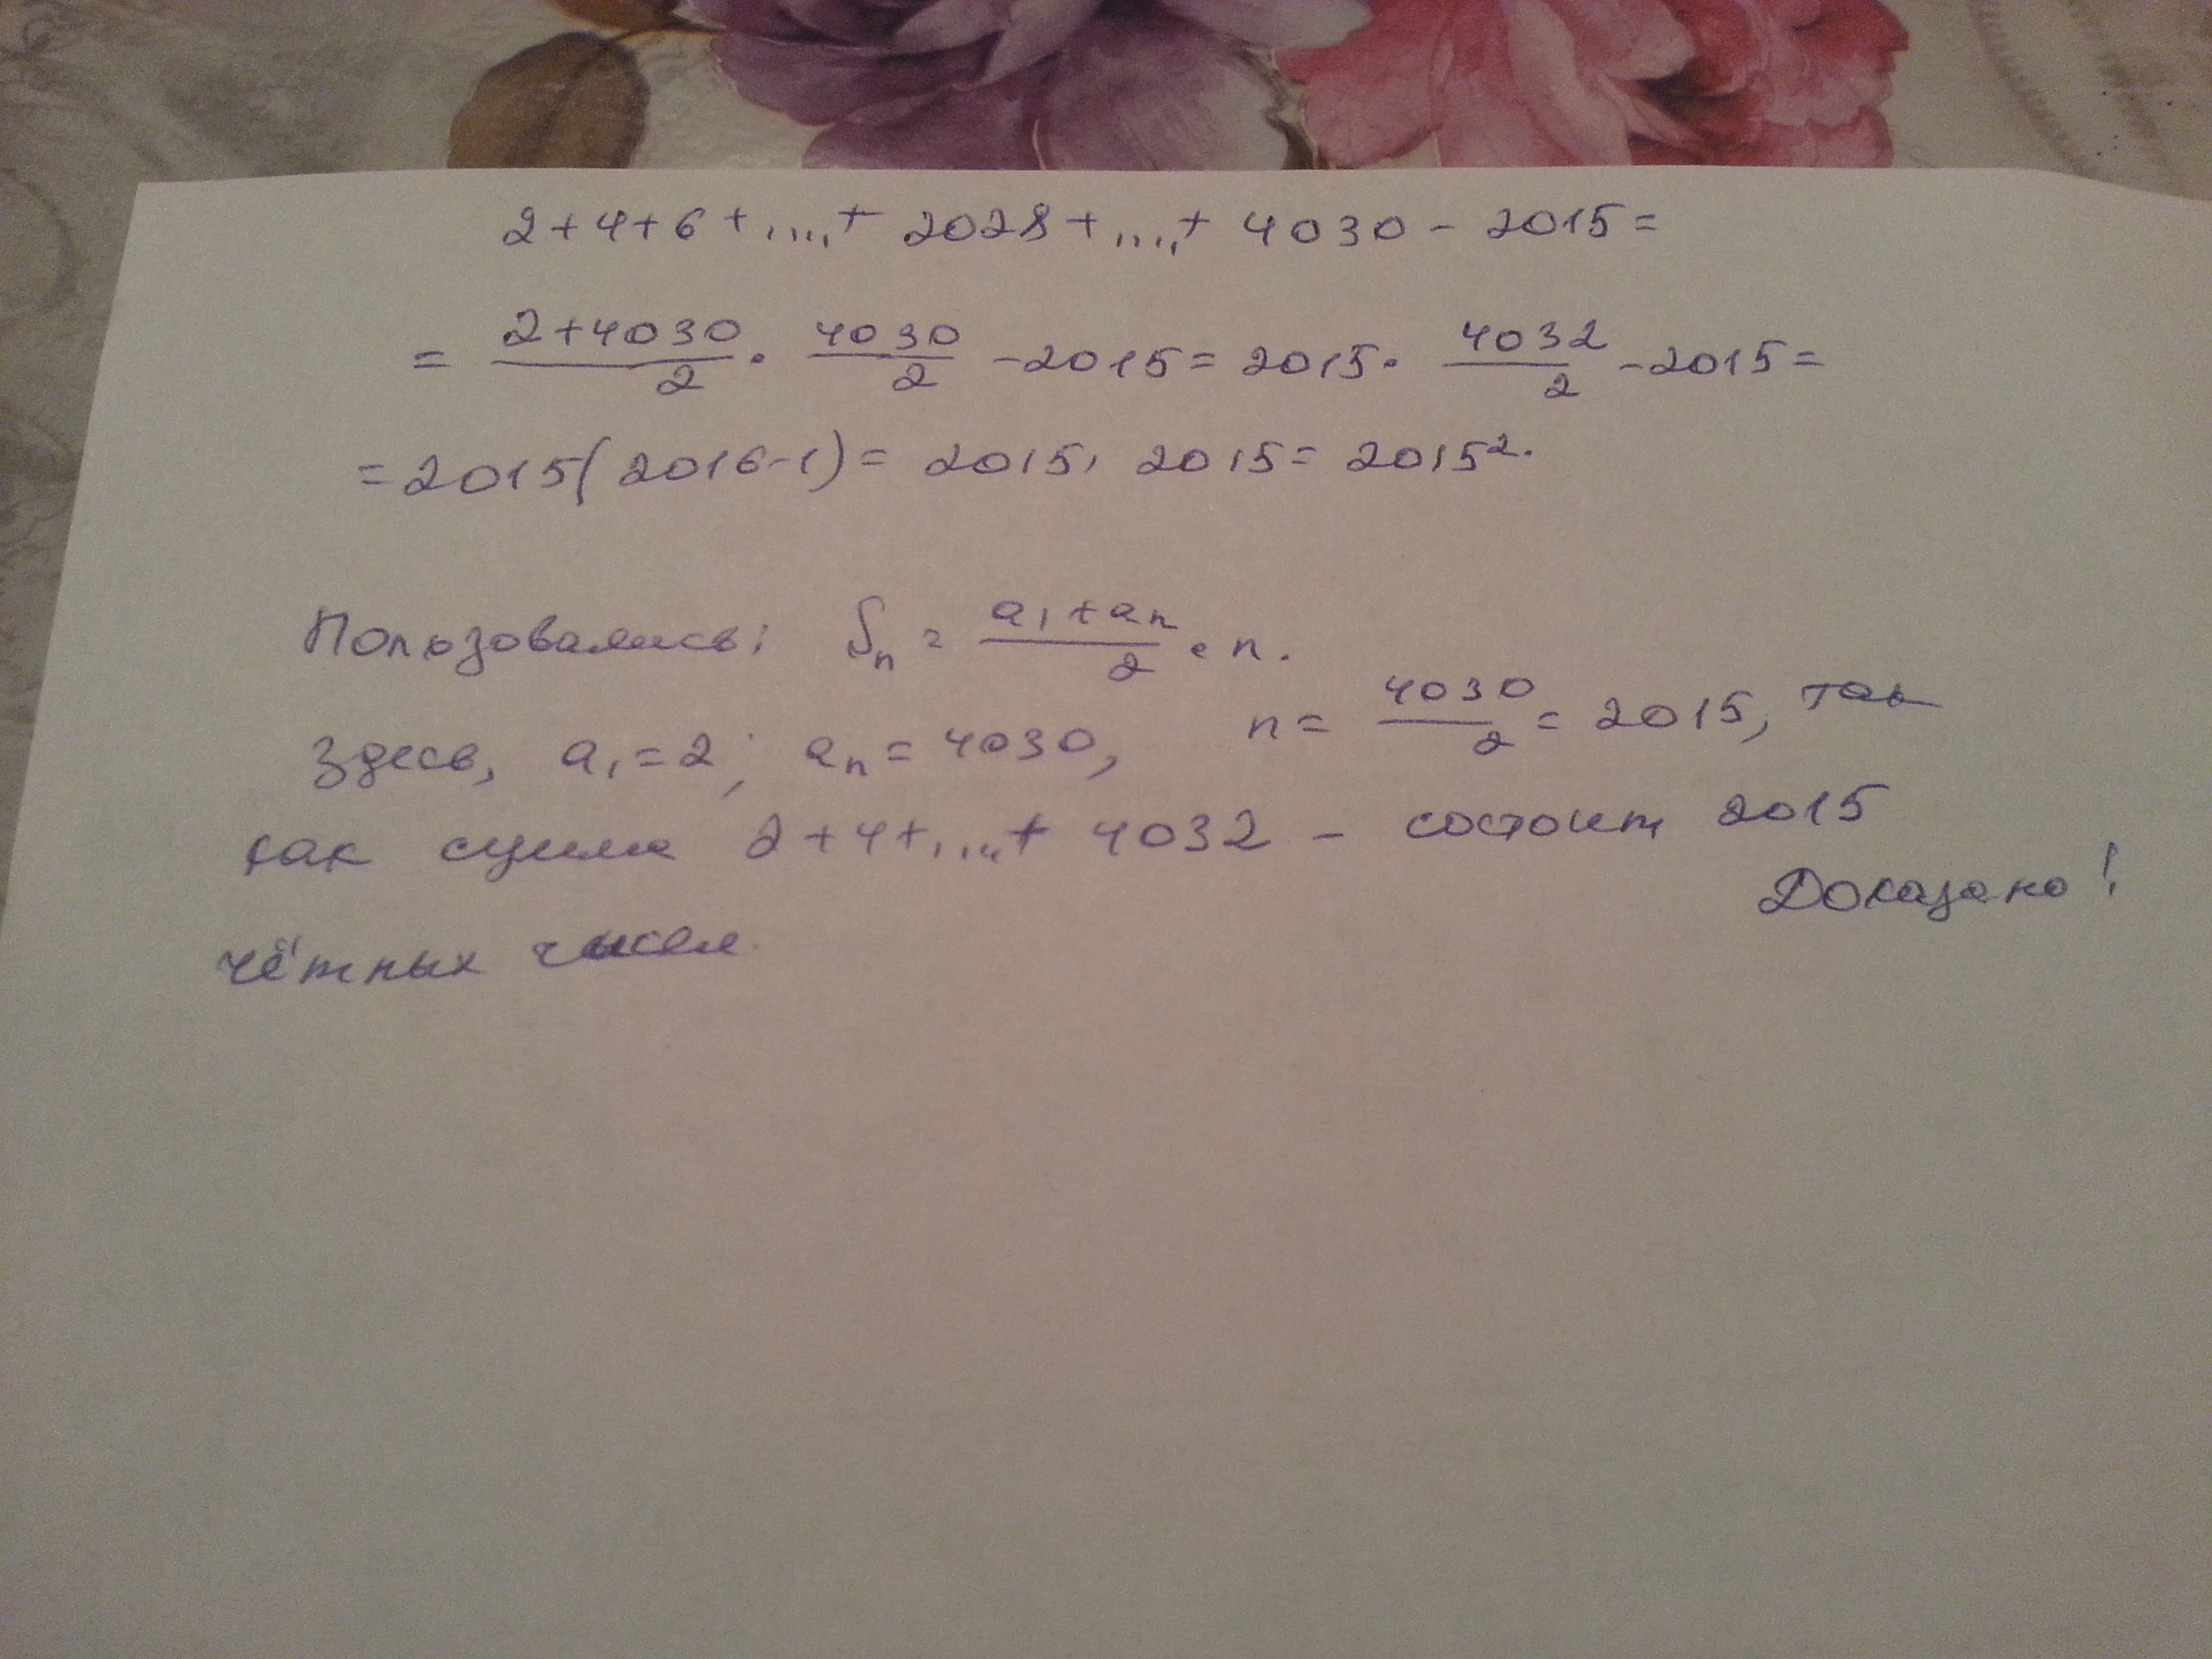 2+4+6+....+ 2028+....+ 4030 - 2015 =
= \frac{2+4030}{2} · \frac{4030}{2} - 2015 = 2015 · \frac{4032}{2} - 2015 =
= 2015(2016-1) = 2015 · 2015 = 2015².
Пользовались: Sₙ = \frac{a₁+aₙ}{2} · n.
Здесь, a₁=2; aₙ=4030, n = \frac{4030}{2} = 2015, так
как сумма 2+4+....+ 4032 - состоит 2015
чётных чисел
Доказано!